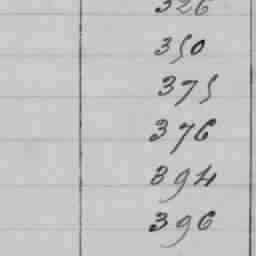 326
350
375
376
394
396